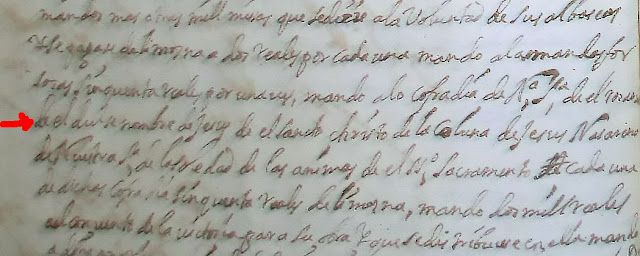 mandos mas otras mill misas que se diçen a la Voluntad de sus albaçeas
se pague de limosna a dos reales por cada una mando a las mandas for
sosas sinquenta reales por una ves, mando a la cofradia de Nª Sª de el
de el dulse nombre de Jesus de el santo christo de la Coluna de Jesus Nasareno
de Nuestra Sª de la piedad de las animas de el SSº Sacramento cada una
de dichas Cofradias sinquenta reales de limosna, mando dos mill reales
al conuento de la uictoria para su obra y que se distribuien en ella mando